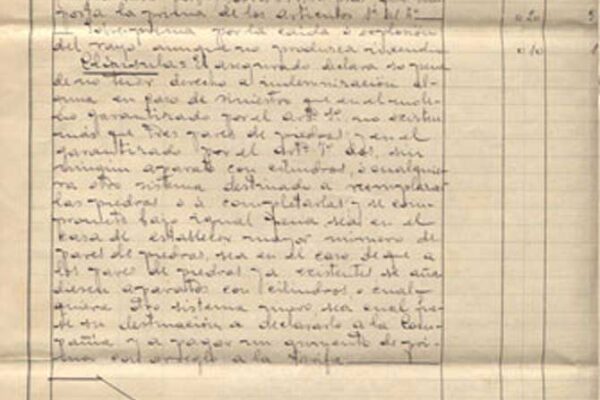 porta la prima de los articulos 1º al 5º
Sobre-prima por la caida o explosion 0 20
del rayo aunque no produzca incendio 0/0
Cláusulas: El asegurado declara so pena
de no tener derecho a indemnizacion al-
guna en caso de siniestro que en el moli-
no garantizado por el artº 1º no existen
más que tres pares de piedras, y en el
garantizado por el artº 1º dos, sin
ningún aparato con cilindros, o cualquie-
ra otro sistema destinado a reemplazar
las piedras o á completarlas y se com-
promete bajo igual pena, sea en el
caso de establecer mayor número de
pares de piedras, sea en el caso de que a
los pares de piedras ya existentes se aña-
diesen aparatos con cilindros, o cual-
quiera otro sistema nuevo, sea cual fue-
se su destinación, a declararlo a la Com-
pañia y a pagar un aumento de pri-
ma con arreglo a la tarifa